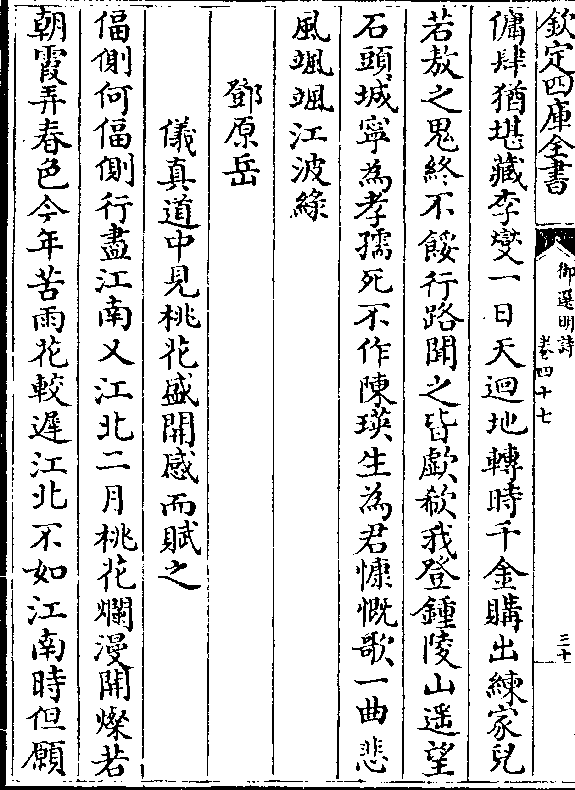 欽定四庫全書
御選明詩
卷四十七
三十
傭肆猶堪藏李燮一日天迴地轉時千金購出練家兒
若敖之鬼終不餒行路聞之皆歔欷我登鍾陵山遥望
石頭城寧為孝孺死不作陳瑛生為君慷慨歌一曲悲
風颯颯江波綠
鄧原岳
儀真道中見桃花盛開感而賦之
偪側何偪側行盡江南又江北二月桃花爛漫開燦若
朝霞弄春色今年苦雨花較遲江北不如江南時但願